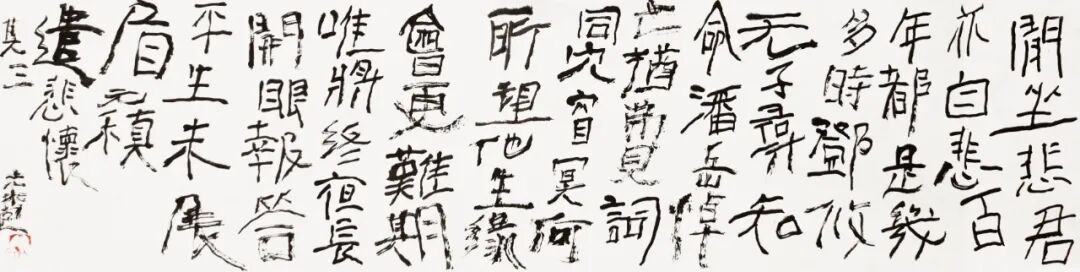 閑坐悲君
亦自悲百
年都是幾
多時鄧攸
无子尋知
命潘岳悼
亡猶費詞
同穴窅冥何
所望他生緣
會更難期
唯將終夜長
開眼報答
平生未展
眉 元稹
遣悲懷
其三